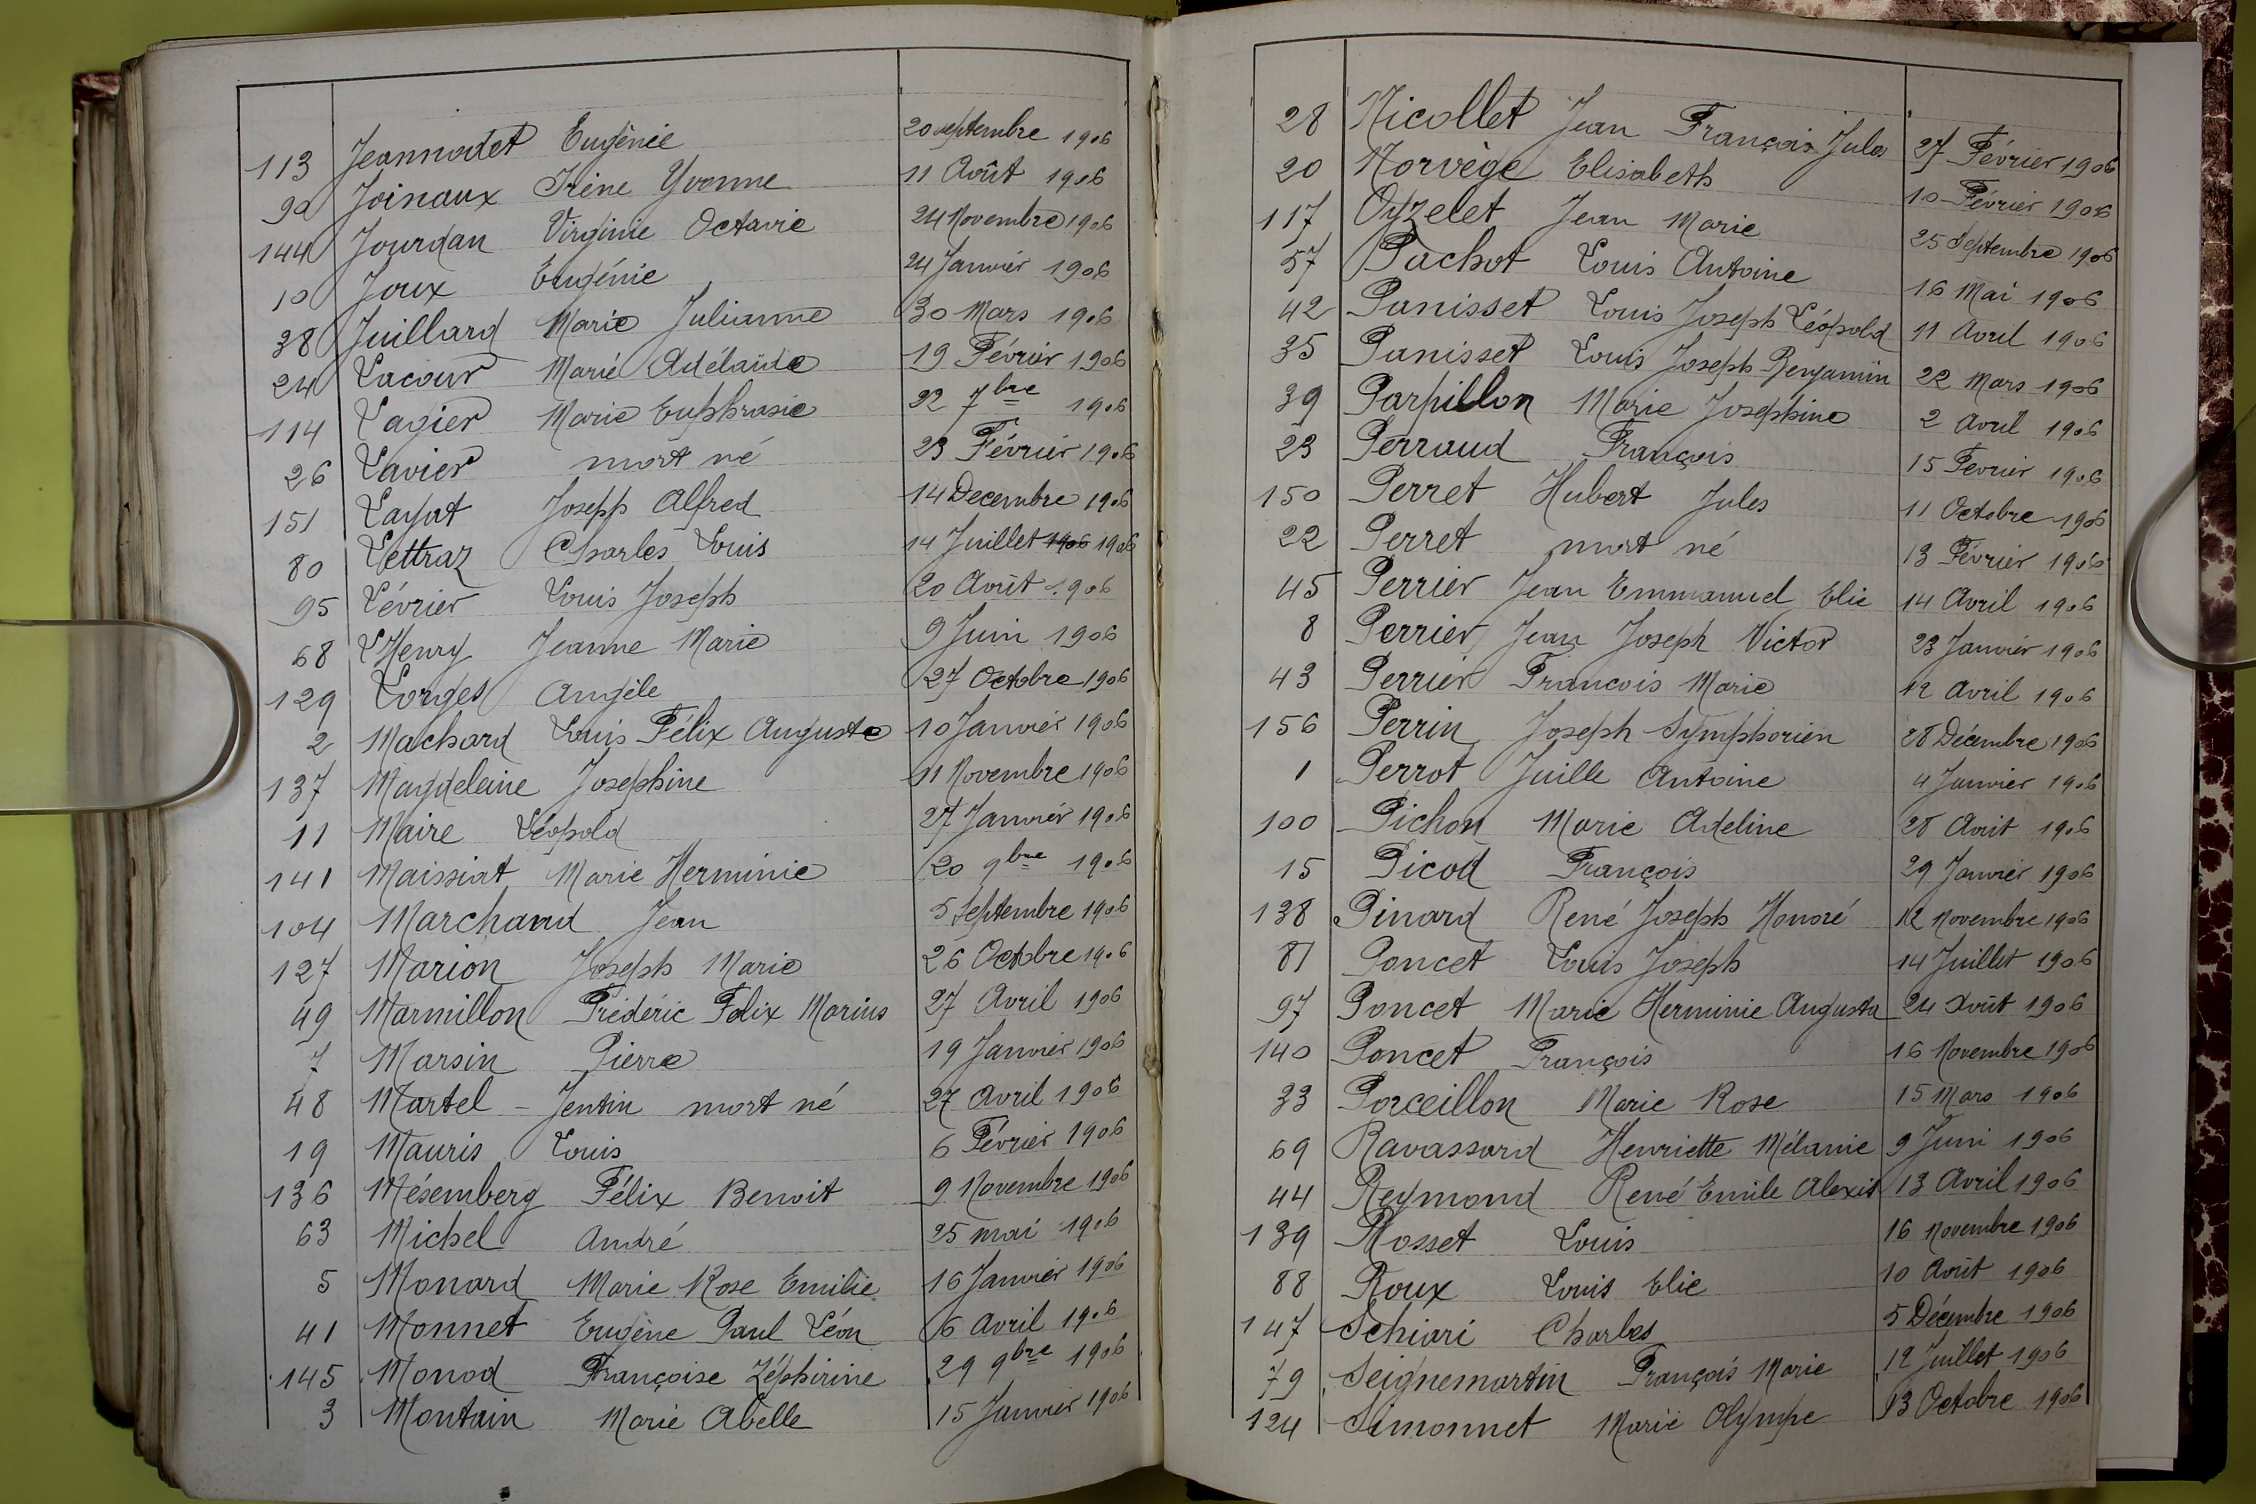 113 Jeannodet Eugénie 20 septembre 1906
90 Joinaux Irène Yvonne 11 Août 1906
144 Jourdan Virginie Octavie 24 Novembre 1906
10 Joux Eugénie 24 Janvier 1906
38 Juillard Marie Julianne 30 Mars 1906
24 Lacour Marie Adélaïde 19 Février 1906
114 Lagier Marie Euphrasie 22 7bre 1906
26 Lavier mort né 23 Février 1906
151 Layat Joseph Alfred 14 Decembre 1906
80 Lettraz Charles Louis 14 Juillet 1906 1906
95 Lévrier Louis Joseph 20 Août 1906
68 L'Henry Jeanne Marie 9 Juin 1906
129 Lorges Angèle 27 Octobre 1906
2 Machard Louis Félix Auguste 10 Janvier 1906
137 Magdeleine Josephine 11 Novembre 1906
11 Maire Léopold 27 Janvier 1906
141 Maissiat Marie Herminie 20 9bre 1906
104 Marchand Jean 5 Septembre 1906
127 Marion Joseph Marie 26 Octobre 1906
49 Marmillon Frédéric Félix Marius 27 Avril 1906
7 Marsin Pierre 19 Janvier 1906
48 Martel - Jentin mort né 27 Avril 1906
19 Mauris Louis 6 Février 1906
136 Mésemberg Félix Benoit 9 Novembre 1906
63 Michel André 25 mai 1906
5 Monard Marie Rose Emilie 16 Janvier 1906
41 Monnet Eugène Paul Léon 6 Avril 1906
145 Monod Françoise Zéphirine 29 9bre 1906
3 Montain Marie Abelle 15 Janvier 1906
28 Nicollet Jean François Jules 27 Février 1906
20 Norvège Elisabeth 10 Février 1906
117 Oyzelet Jean Marie 25 Septembre 1906
57 Pachot Louis Antoine 16 Mai 1906
42 Panisset Louis Joseph Léopold 11 Avril 1906
35 Panisset Louis Joseph Benjamin 22 Mars 1906
39 Parpillon Marie Joséphine 2 Avril 1906
23 Perraud François 15 Février 1906
150 Perret Hubert Jules 11 Octobre 1906
22 Perret mort né 13 Février 1906
45 Perrier Jean Emmanuel Elie 14 Avril 1906
8 Perrier Jean Joseph Victor 23 Janvier 1906
43 Perrier Francois Marie 12 Avril 1906
156 Perrin Joseph Symphorien 28 Décembre 1906
1 Perrot Juille Antoine 4 Janvier 1906
100 Pichon Marie Adeline 28 Août 1906
15 Picod François 29 Janvier 1906
138 Pinard René Joseph Honoré 12 Novembre 1906
81 Poncet Louis Joseph 14 Juillet 1906
97 Poncet Marie Herminie Augusta 24 Août 1906
140 Poncet François 16 Novembre 1906
33 Porceillon Marie Rose 15 Mars 1906
69 Ravassard Henriette Mélanie 9 Juin 1906
44 Reymond René Emile Alexis 13 Avril 1906
139 Rosset Louis 16 Novembre 1906
88 Roux Louis Elie 10 Août 1906
147 Schiari Charles 5 Décembre 1906
79 Seignemartin François Marie 12 Juillet 1906
124 Simonnet Marie Olympe 13 Octobre 1906